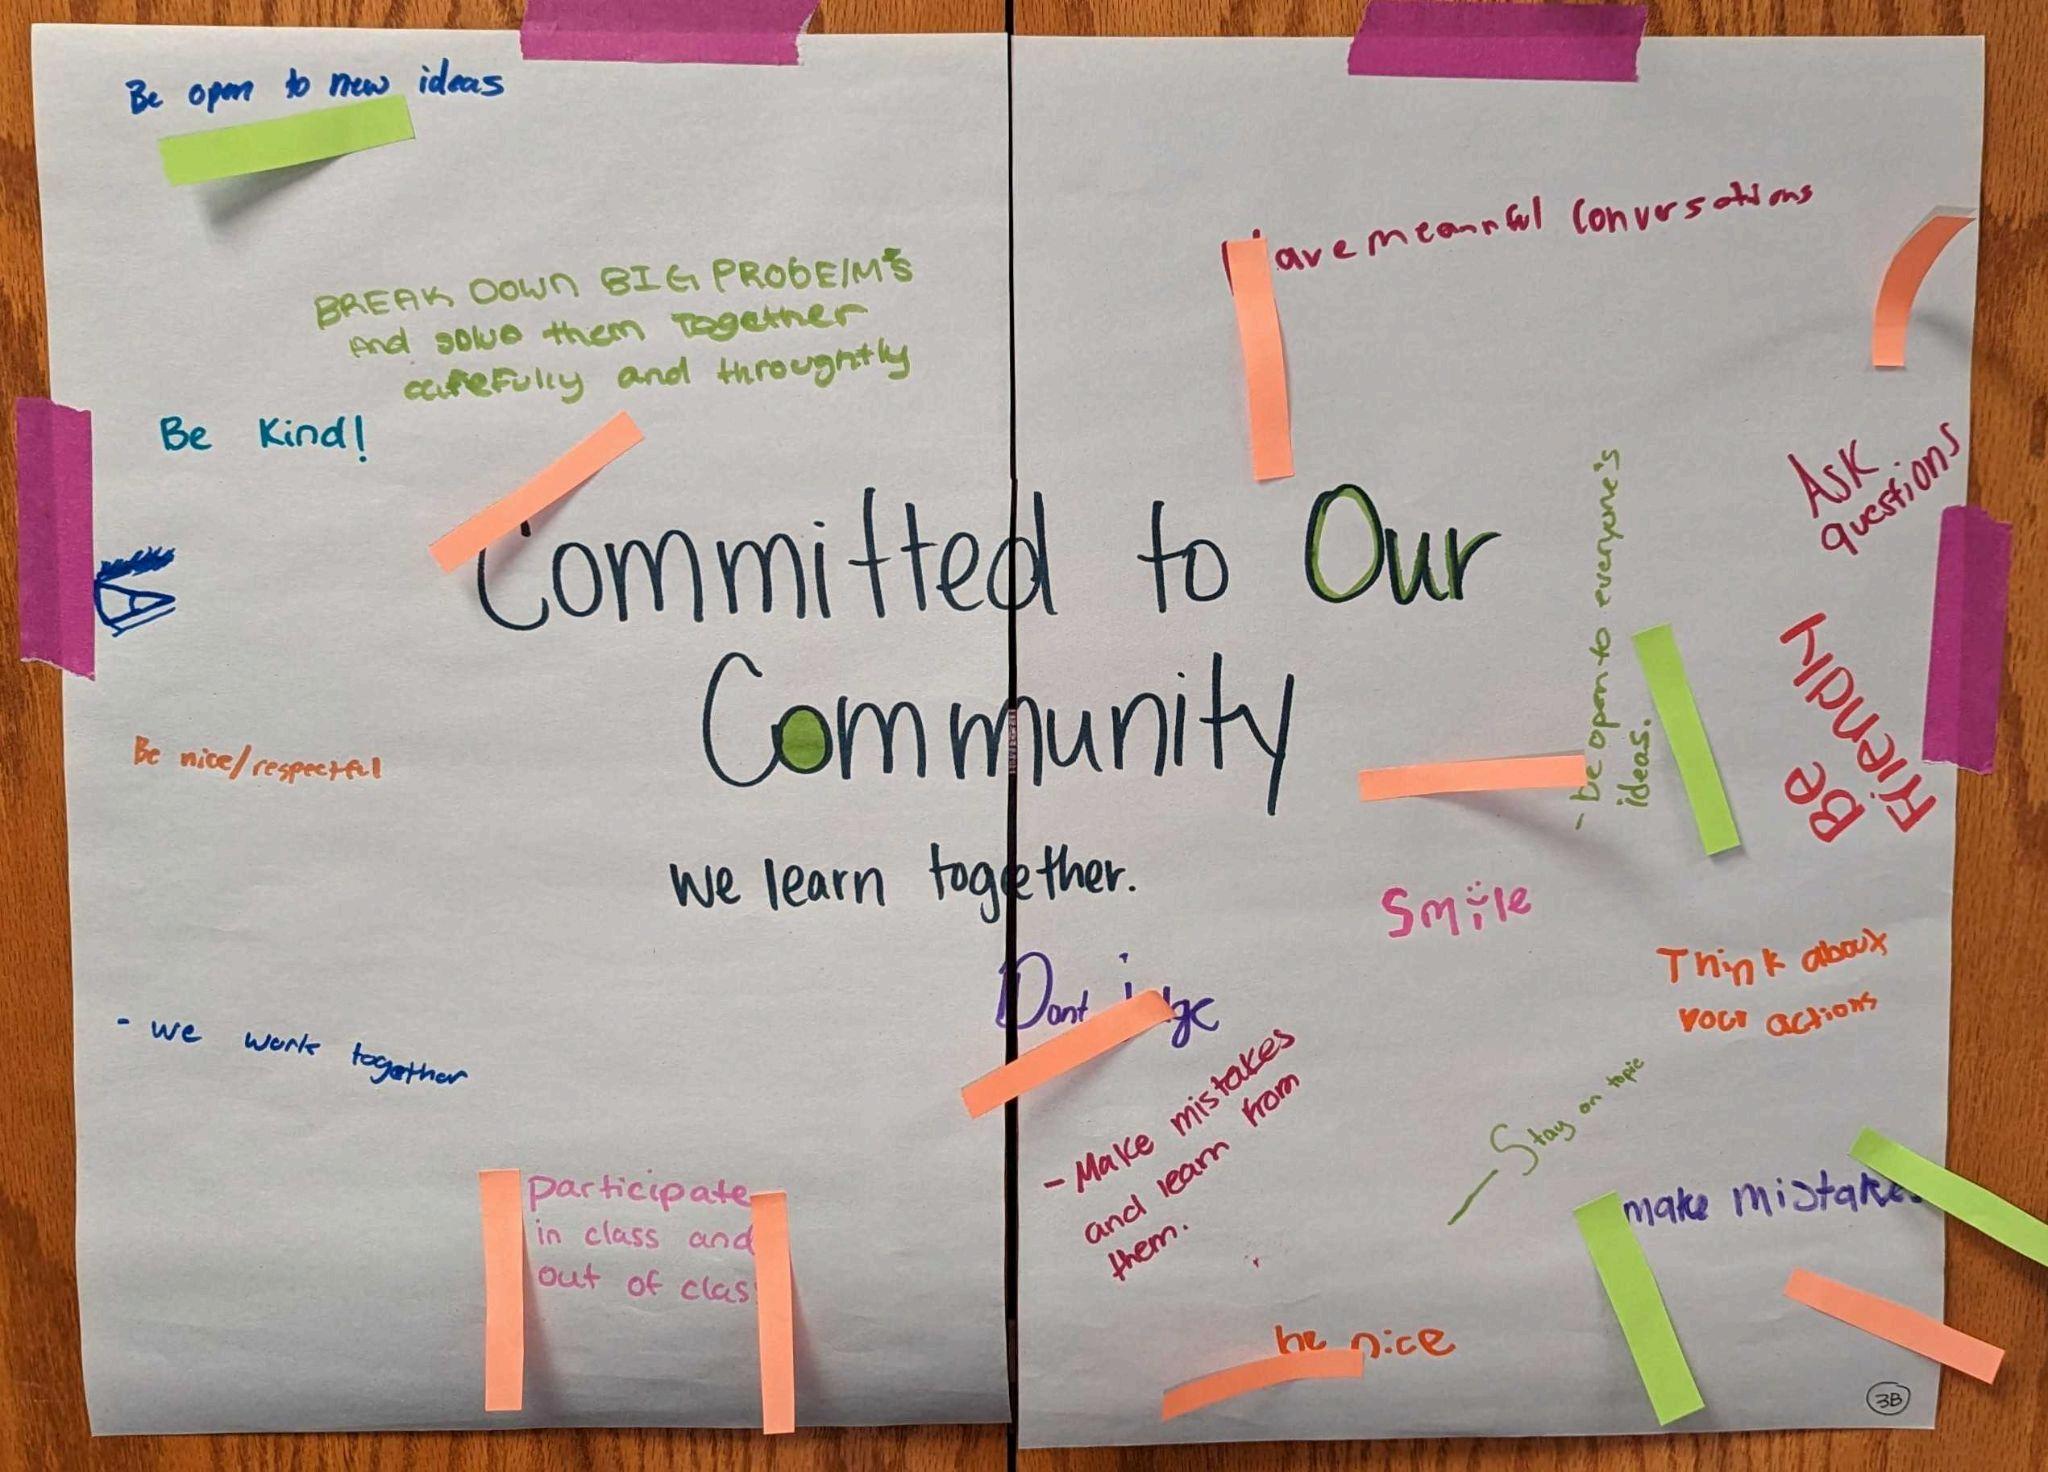 Be open to new ideas
BREAK DOWN BIG PROBE/M'S
And solve them Together
carefully and throughtly
Be Kind!
Have meannful Conversations
Ask
questions
Committed to Our
Community
we learn together.
- be open to everyone's
ideas.
Be
Friendly
Be nice/respectful
Smile
Dont judge
Think about
your actions
- we work together
- Make mistakes
and learn from
them.
- Stay on topic
participate
in class and
out of clas
make mistakes
be nice
3B